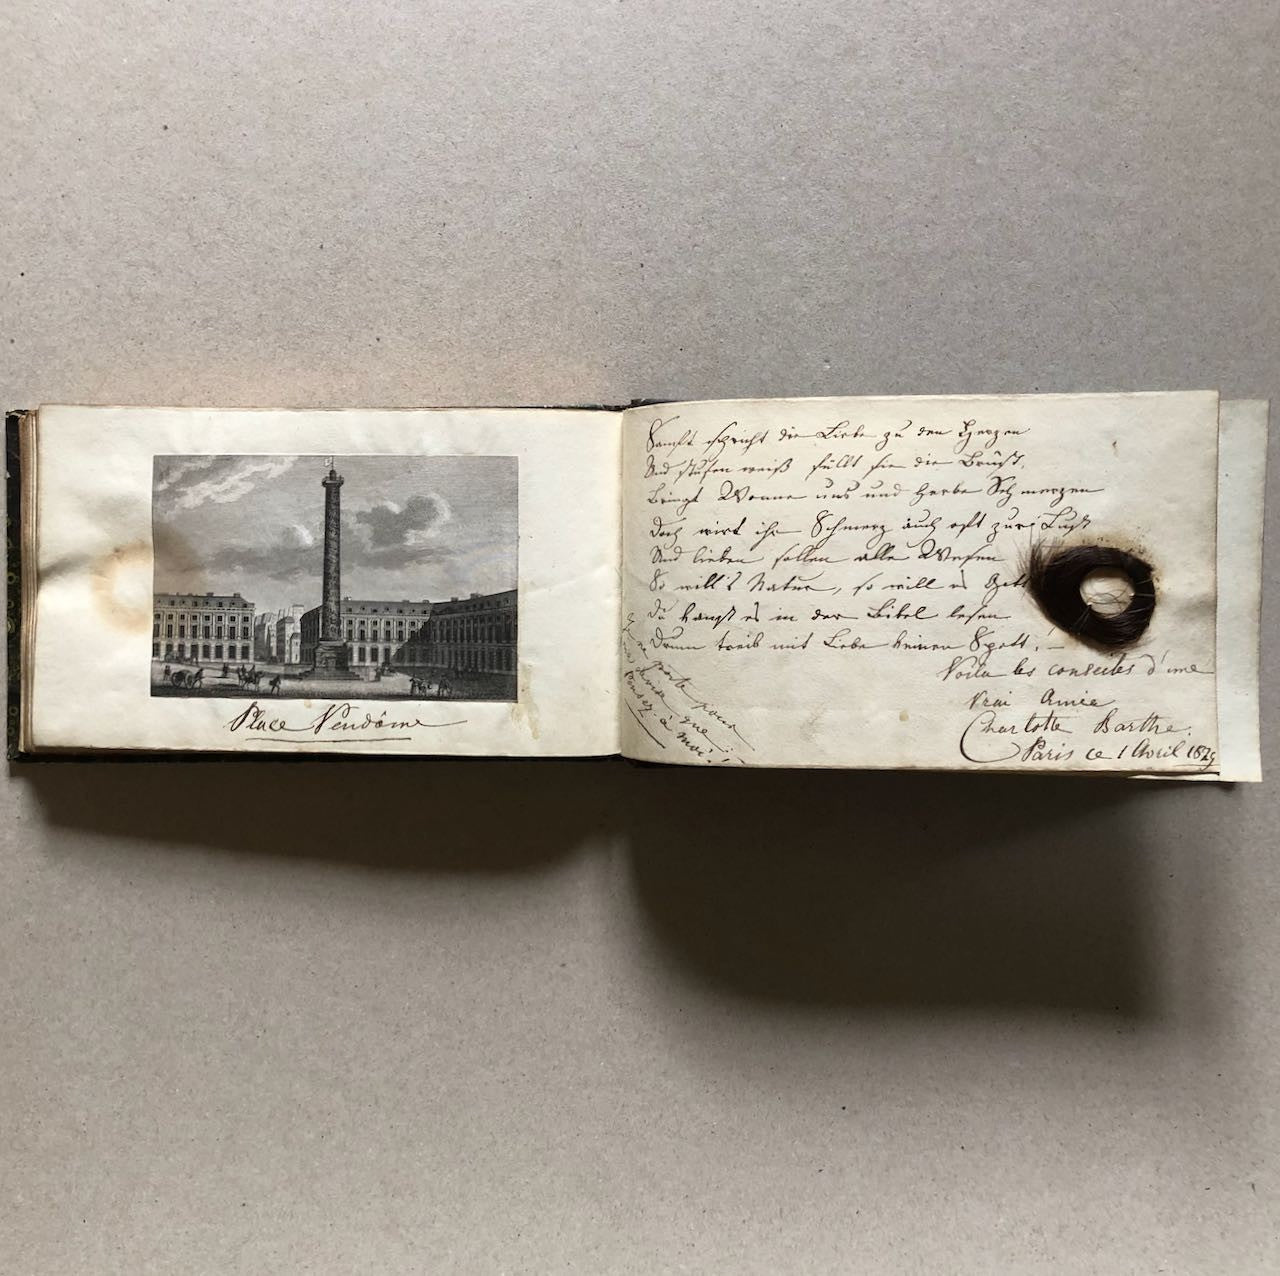 Place Vendôme
Sanft schleicht die Liebe zu den Herzen
Und stufen weiß füllt sie die Brust,
Bringt Wonne uns und herbe Schmerzen
Doch wird ihr Schmerz auch oft zur Lust
Und lieben sollen alle Wesen
So will's Natur, so will es Gott
Du kanst es in der Bibel lesen
Drum treib mit Liebe keinen Spott! –
Voila les conseiles d'une
vrai Amie
Charlotte Barthe.
Paris ce 1 Avril 1829
Je ne porte pour
devise que
Pensez-à moi!